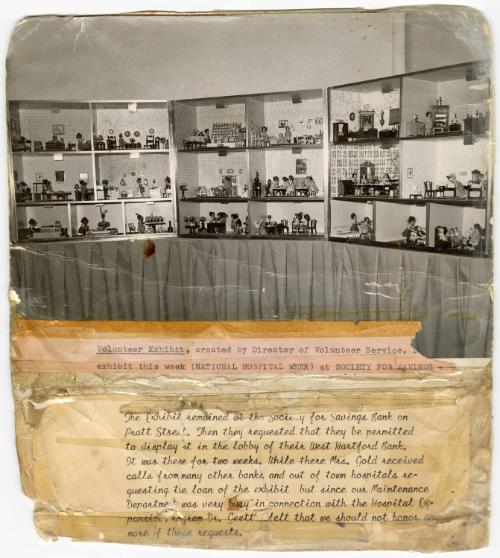 Volunteer Exhibit, created by Director of Volunteer Service,
exhibit this week (NATIONAL HOSPITAL WEEK) at SOCIETY FOR SAVINGS
The Exhibit remained at the Society for Savings Bank on
Pratt Street. Then they requested that they be permitted
to display it in the lobby of their West Hartford Bank.
It was there for two weeks. While there Mrs. Gold received
calls from many other banks and out of town hospitals re-
questing the loan of the exhibit but since our Maintenance
Department was very busy in connection with the Hospital Ex-
pansion Program Dr. felt that we should not honor any
more of these requests.